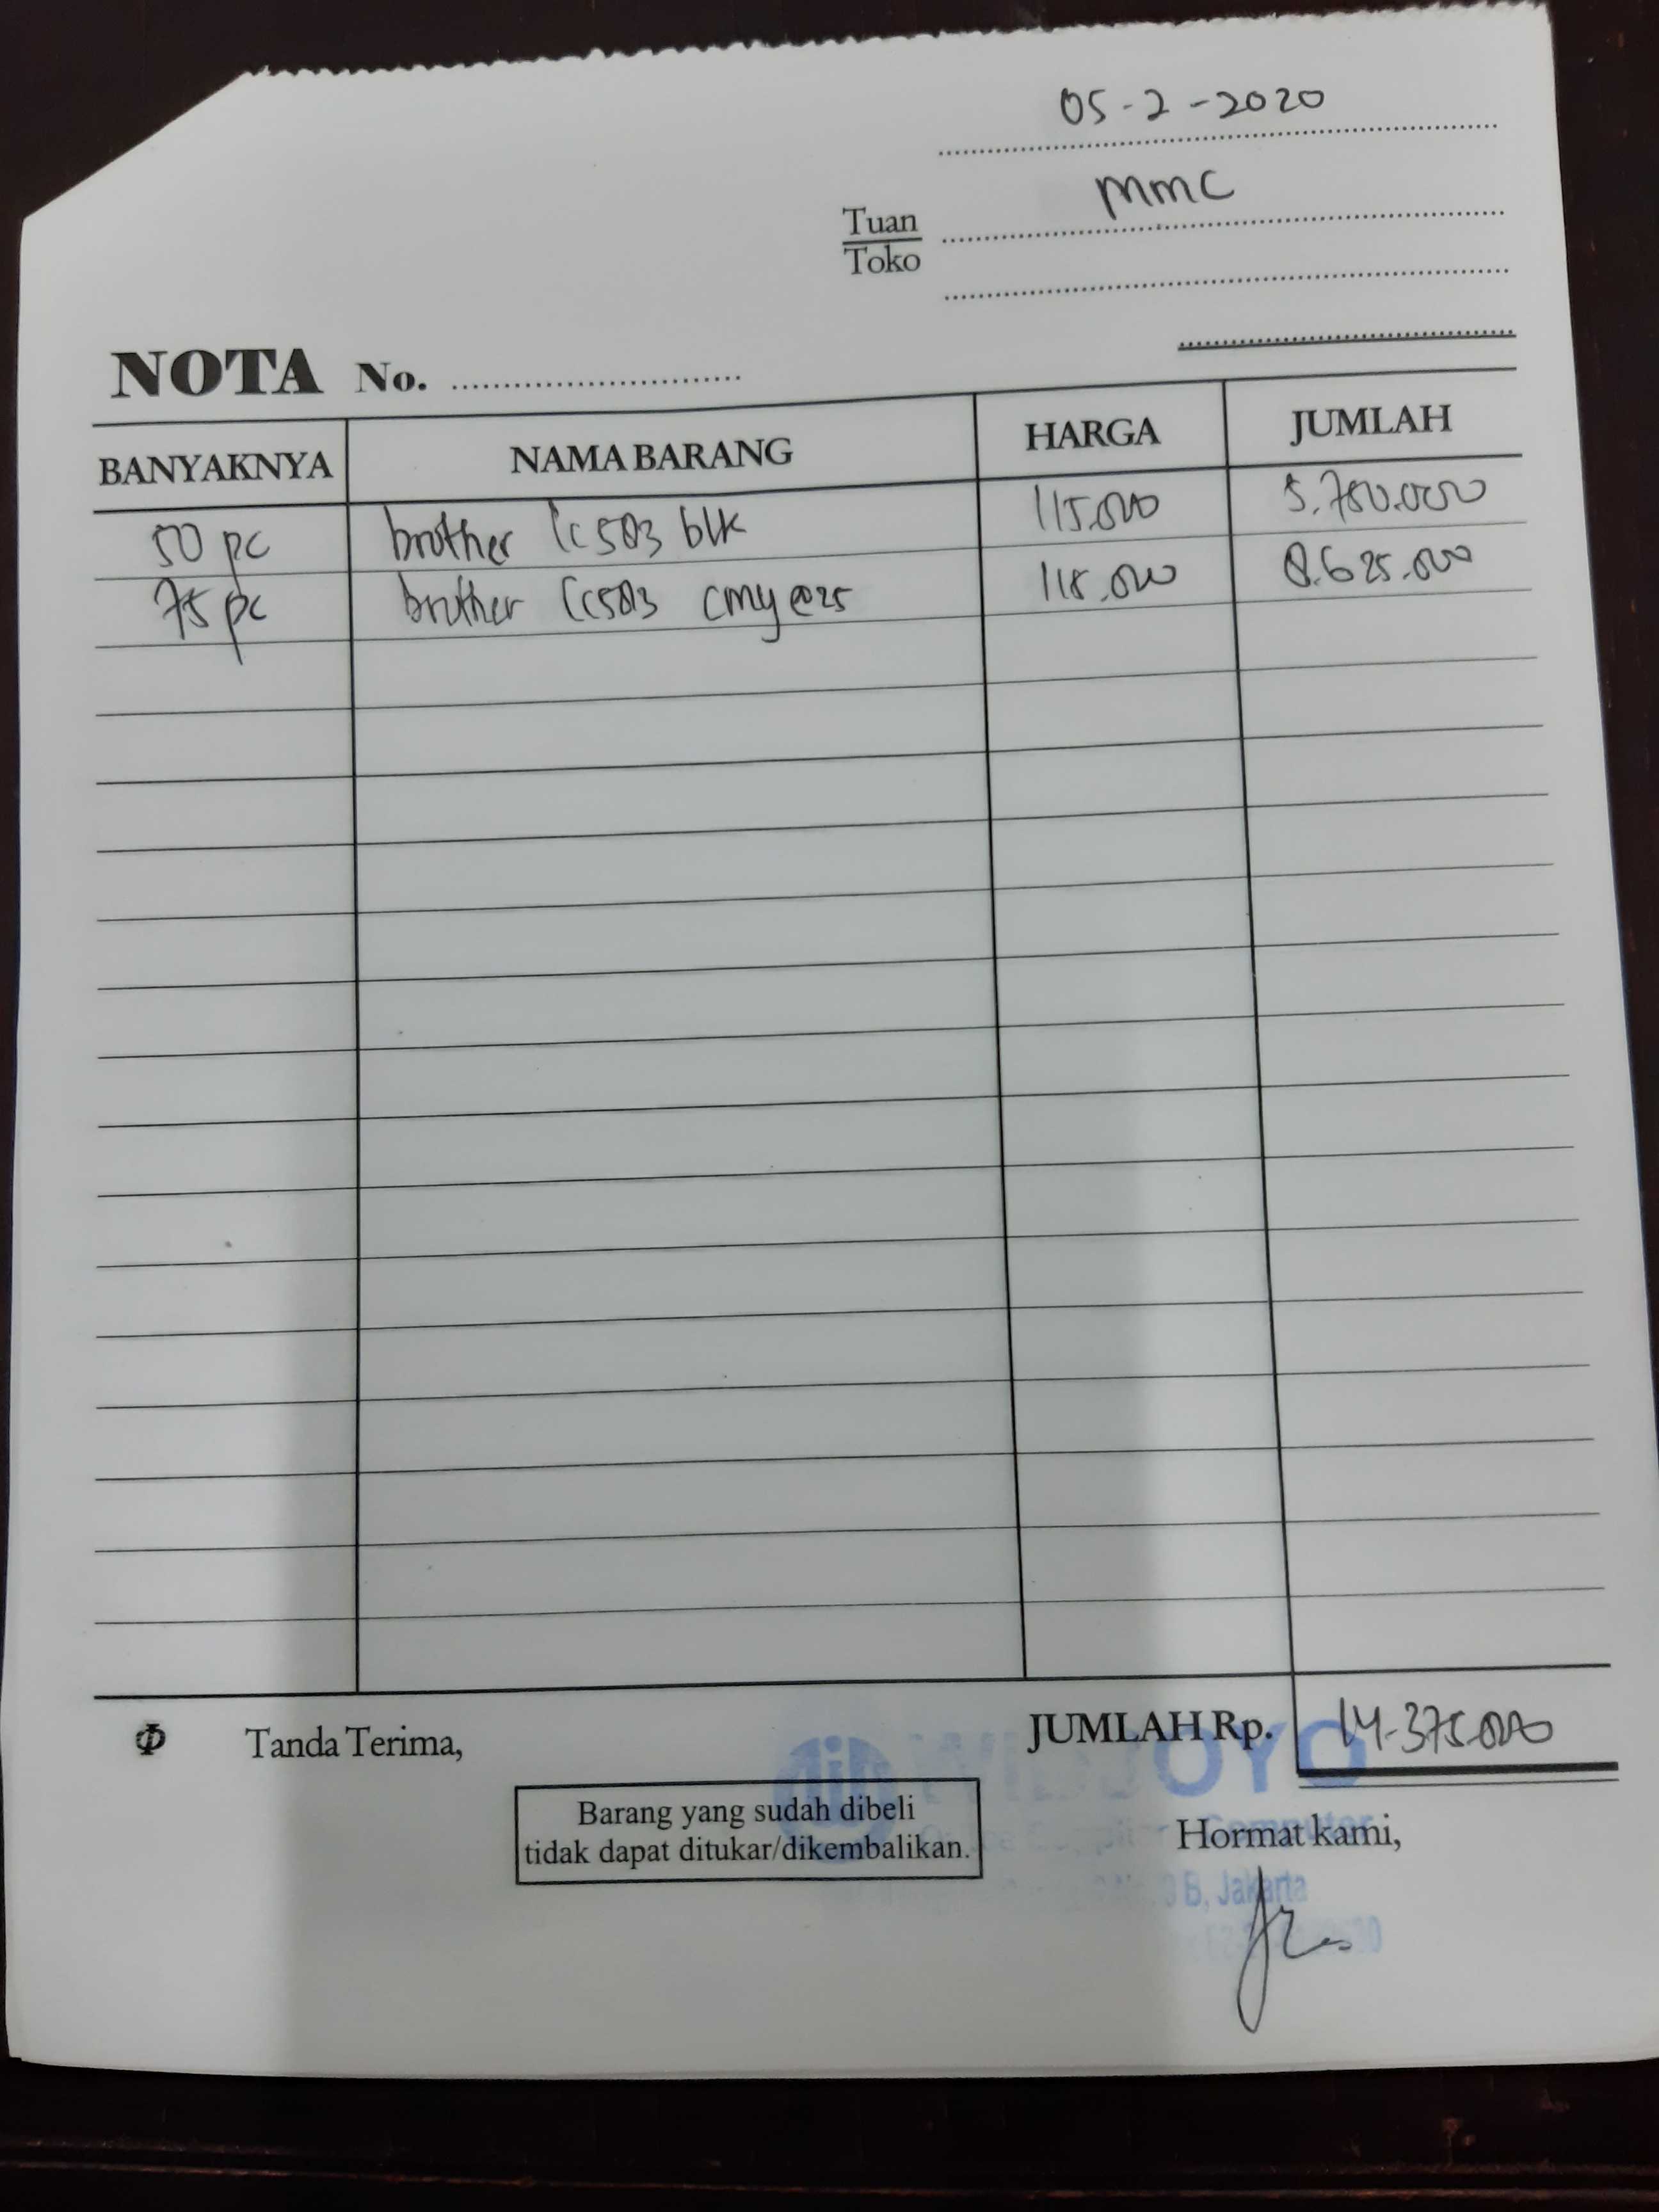 05-2-2020
Tuan mmc
Toko
NOTA No.
BANYAKNYA NAMA BARANG HARGA JUMLAH
50 pc brother lc583 blk 115.000 5.750.000
75 pc brother lc583 cmy @25 115.000 8.625.000
Φ Tanda Terima, JUMLAH Rp. 14.375.000
OYO
Barang yang sudah dibeli
tidak dapat ditukar/dikembalikan.
Computer
Hormat kami,
B, Jakarta